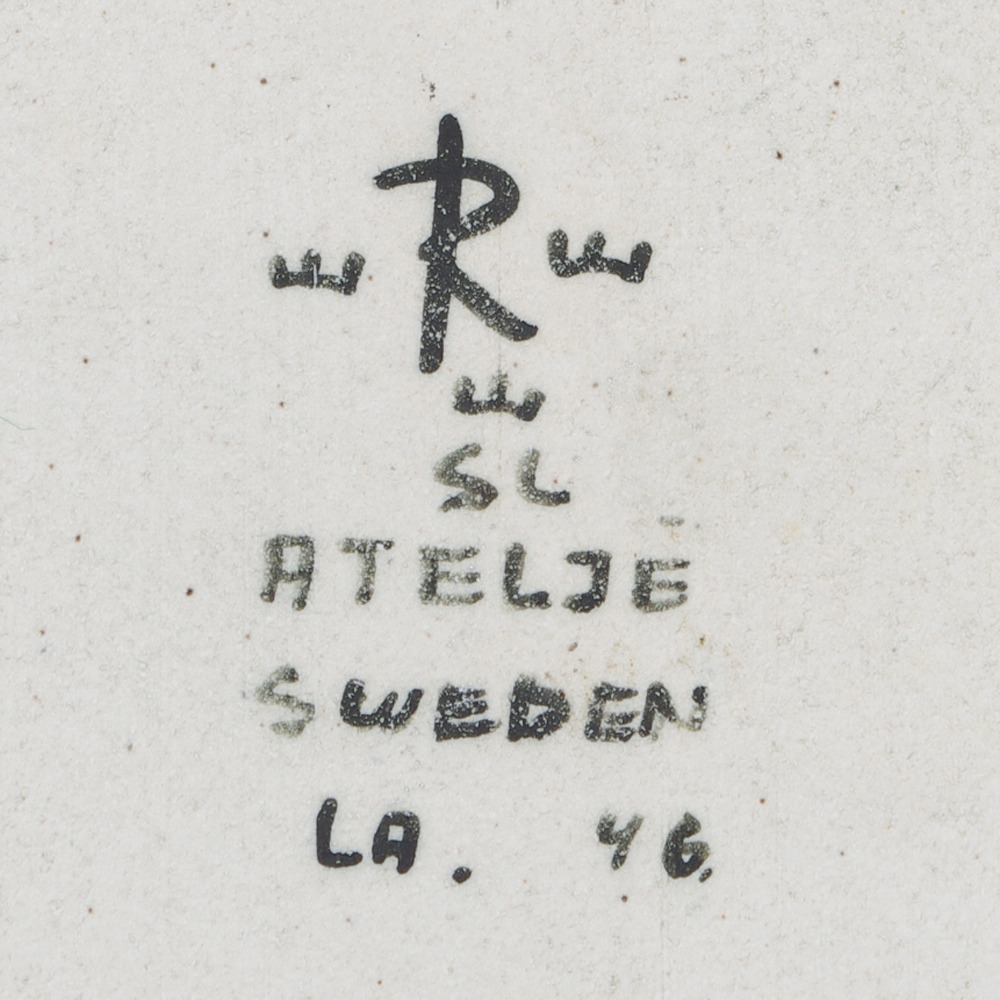 R
SL
ATELJE
SWEDEN
LA. 46.